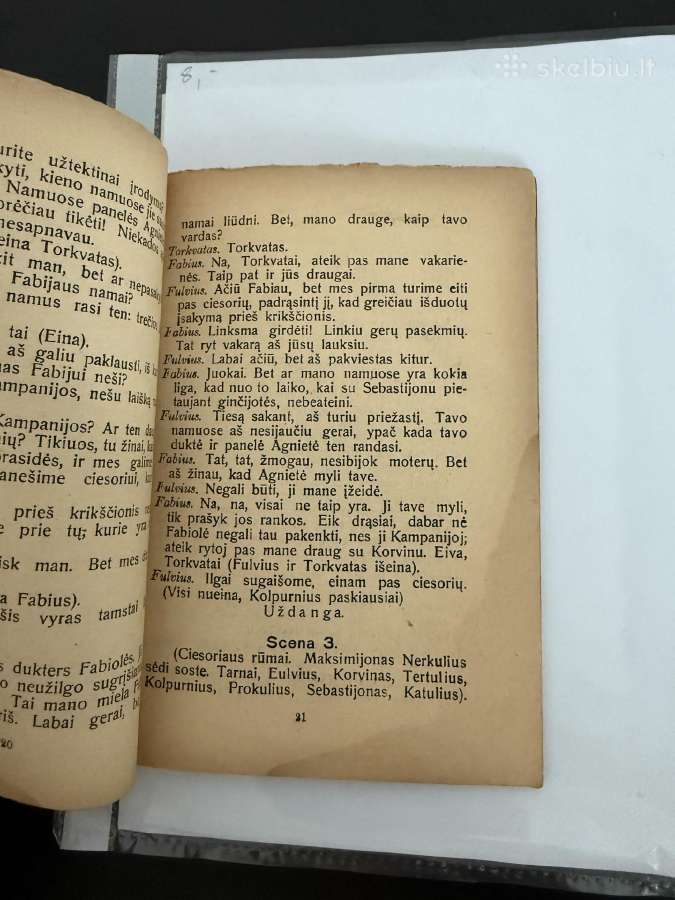 8,-
skelbiu.lt
urite užtektinai
kyti, kieno namuose jie
Namuose panelės
orėčiau tikėti!
nesapnavau.
eina Torkvatas).
kit man, bet ar
Fabijaus namai?
namus rasi ten:
tai (Eina).
aš galiu paklausti, iš
nas Fabijui neši?
ampanijos, nešu laišką
Kampanijos? Ar ten
nių? Tikiuos, tu žinai,
prasidės, ir mes
anešime ciesoriui,
prieš krikščionis
e prie tų; kurie yra
isk man. Bet mes
a Fabius).
šis vyras tamstai
s dukters Fabiolės.
o neužilgo
Tai mano miela
riš. Labai gerai,
20
namai liūdni. Bet, mano drauge, kaip tavo
vardas?
Torkvatas. Torkvatas.
Fabius. Na, Torkvatai, ateik pas mane vakarie-
nės. Taip pat ir jūs draugai.
Fulvius. Ačiū Fabiau, bet mes pirma turime eiti
pas ciesorių, padrąsinti jį, kad greičiau išduotų
įsakymą prieš krikščionis.
Fabius. Linksma girdėti! Linkiu gerų pasekmių.
Tat ryt vakarą aš jūsų lauksiu.
Fulvius. Labai ačiū, bet aš pakviestas kitur.
Fabius. Juokai. Bet ar mano namuose yra kokia
liga, kad nuo to laiko, kai su Sebastijonu pie-
taujant ginčijotės, nebeateini.
Fulvius. Tiesą sakant, aš turiu priežastį. Tavo
namuose aš nesijaučiu gerai, ypač kada tavo
duktė ir panelė Agnietė ten randasi.
Fabius. Tat, tat, žmogau, nesibijok moterų. Bet
aš žinau, kad Agnietė myli tave.
Fulvius. Negali būti, ji mane įžeidė.
Fabius. Na, na, visai ne taip yra. Ji tave myli,
tik prašyk jos rankos. Eik drąsiai, dabar nė
Fabiolė negali tau pakenkti, nes ji Kampanijoj;
ateik rytoj pas mane draug su Korvinu. Eiva,
Torkvatai (Fulvius ir Torkvatas išeina).
Fulvius. Ilgai sugaišome, einam pas ciesorių.
(Visi nueina, Kolpurnius paskiausiai)
Uždanga.
Scena 3.
(Ciesoriaus rūmai. Maksimijonas Nerkulius
sėdi soste. Tarnai, Eulvius, Korvinas, Tertulius,
Kolpurnius, Prokulius, Sebastijonas, Katulius).
21